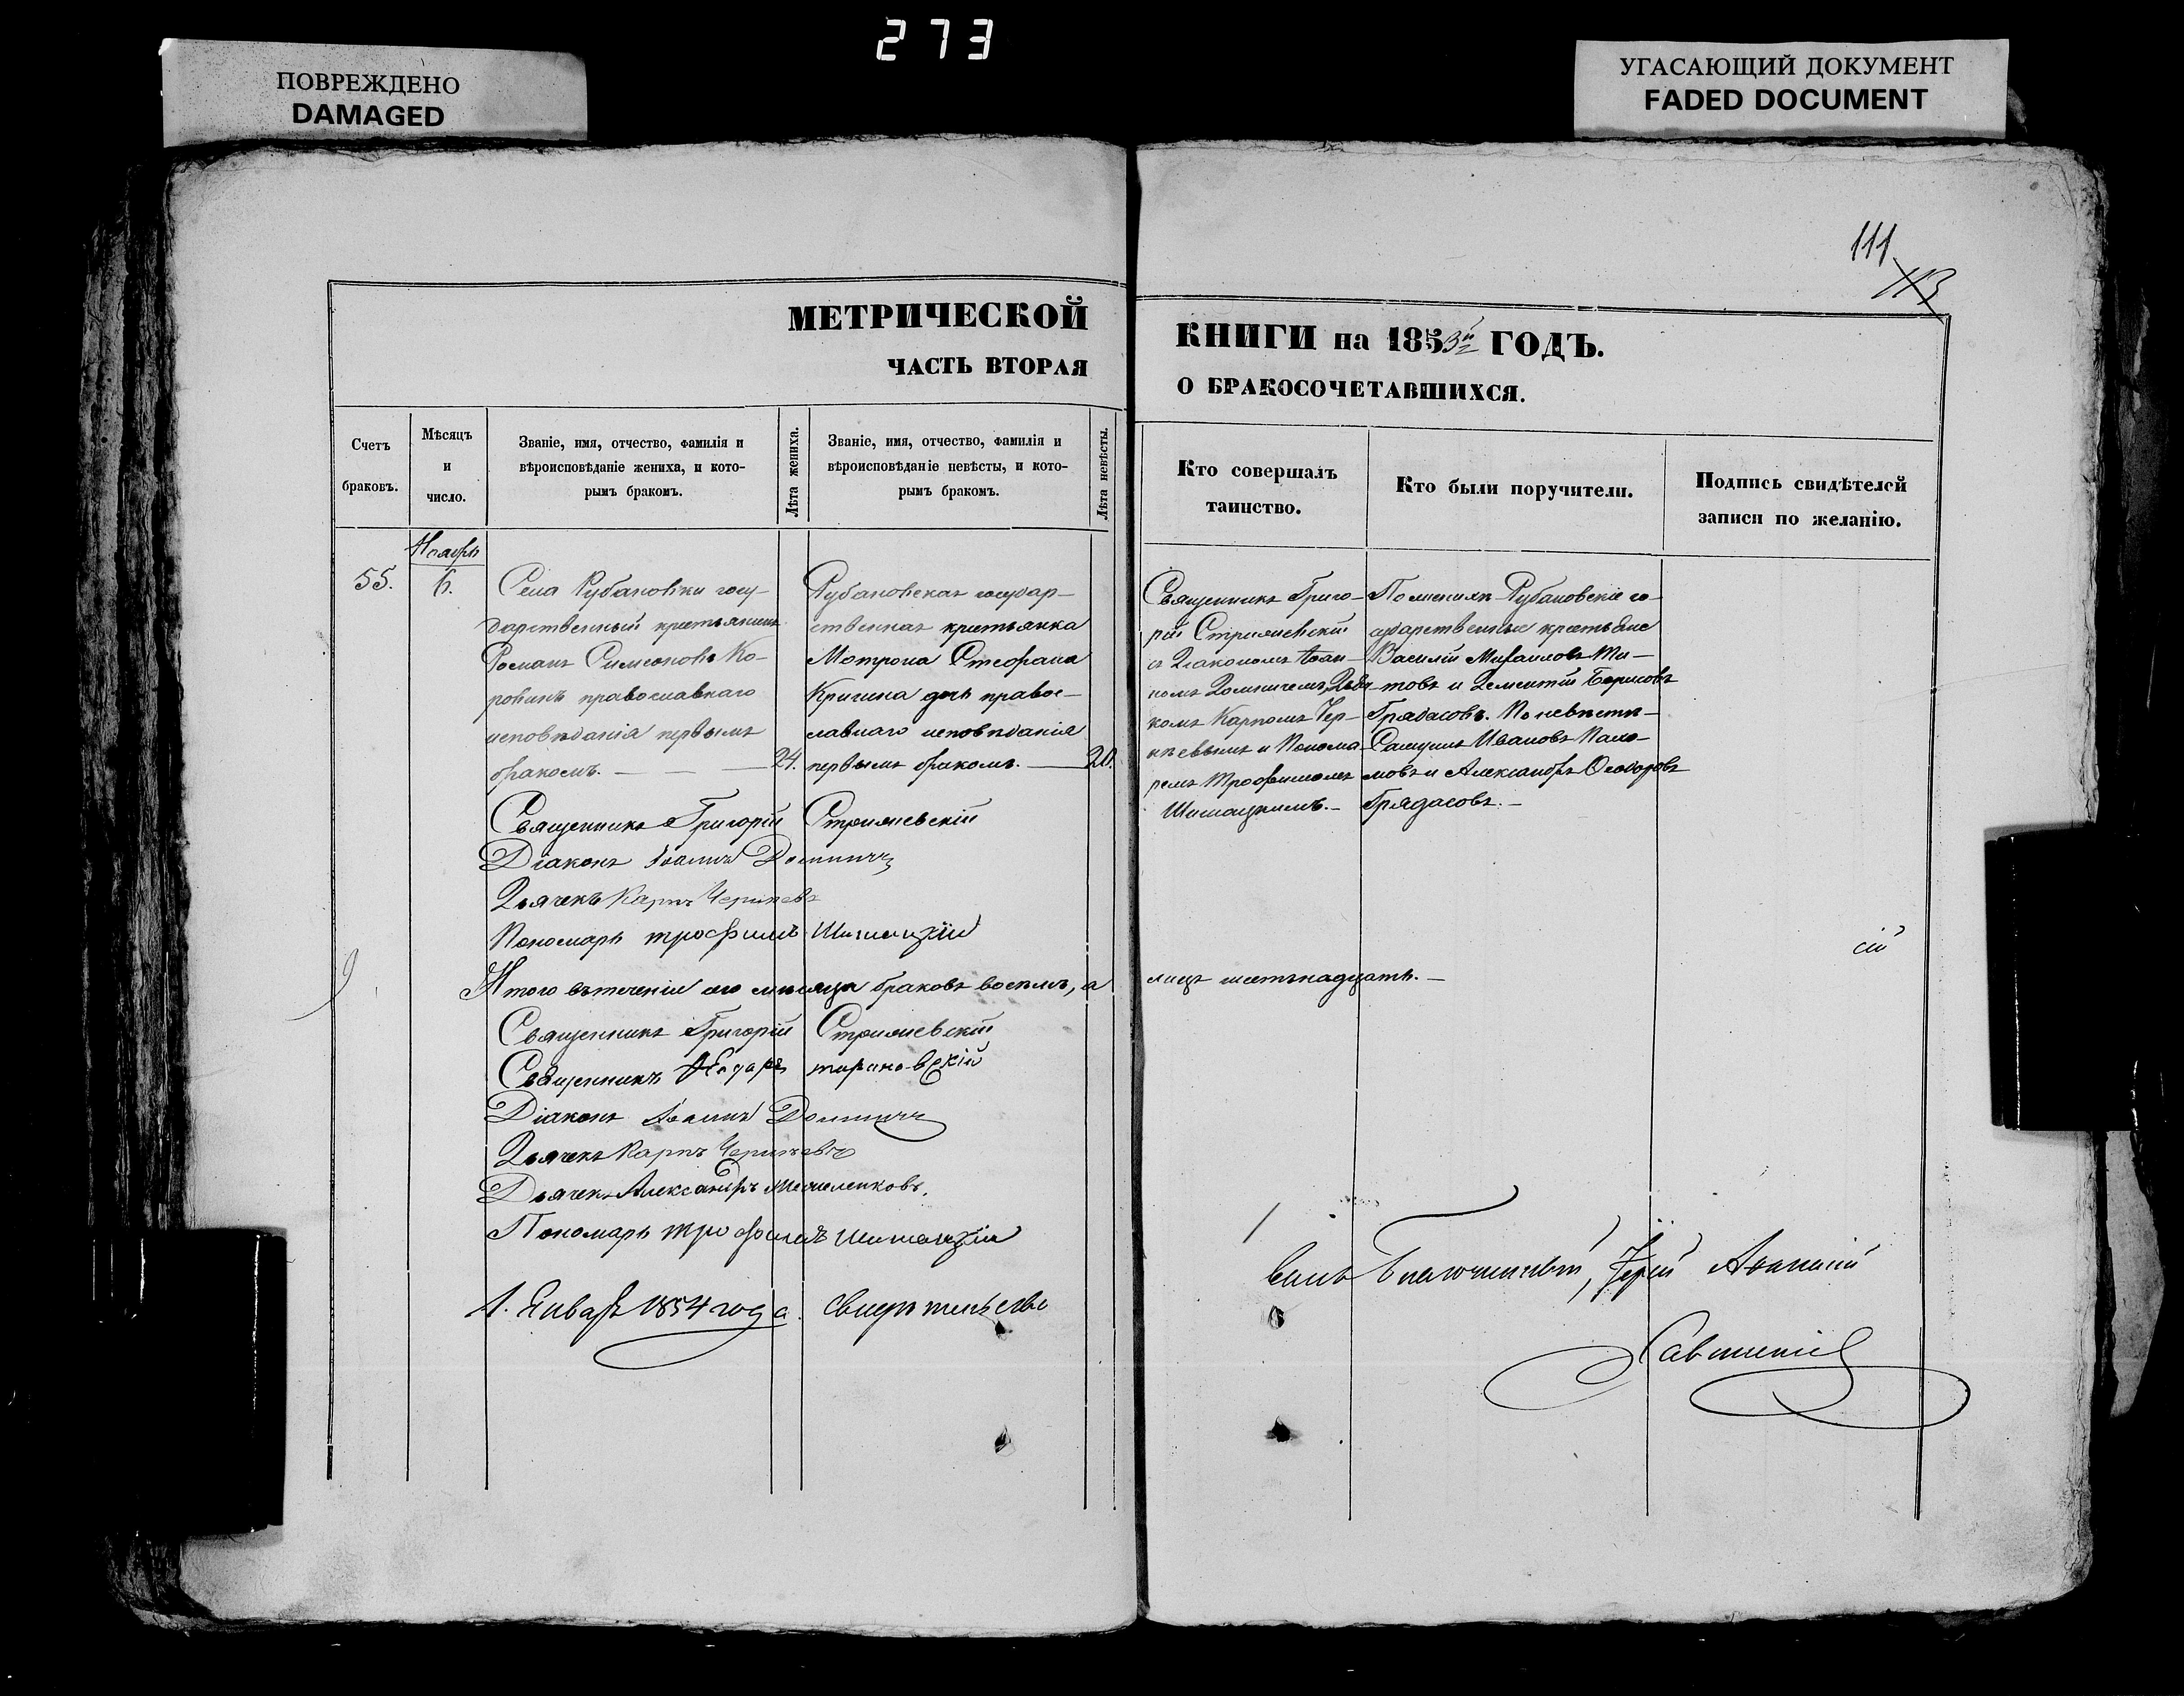 273
ПОВРЕЖДЕНО
DAMAGED
УГАСАЮЩИЙ ДОКУМЕНТ
FADED DOCUMENT
111
113
МЕТРИЧЕСКОЙ
ЧАСТЬ ВТОРАЯ
КНИГИ на 1853й ГОДЪ.
О БРАКОСОЧЕТАВШИХСЯ.
Счетъ
браковъ.
Мѣсяцъ
и
число.
Званіе, имя, отчество, фамилія и
вѣроисповѣданіе жениха, и кото-
рымъ бракомъ.
Лѣта жениха.
Званіе, имя, отчество, фамилія и
вѣроисповѣданіе невѣсты, и кото-
рымъ бракомъ.
Лѣта невѣсты.
Кто совершалъ
таинство.
Кто были поручители.
Подпись свидѣтелей
записи по желанію.
Ноябрь
55.
6.
Села Рубановки госу-
дарственный крестьянинъ
Романъ Симеоновъ Ко-
ровинъ православнаго
исповѣданія первымъ
бракомъ.
24.
Рубановская государ-
ственная крестьянка
Матрона Стефана
дочь правос-
лавнаго исповѣданія
первымъ бракомъ.
20.
Священникъ Григо-
рій
съ Діакономъ Іоан-
номъ
комъ Карпомъ Чер-
и Понома-
ремъ Трофимомъ
Шишацкимъ.
По женихѣ Рубановскіе го-
сударственные крестьяне
Василій Михаиловъ Ти-
товъ и Дементій Борисовъ
Грядасовъ. По невѣстѣ
Самуилъ Ивановъ Пахо-
мовъ и Александръ Ѳеодоровъ
Грядасовъ.
Священникъ Григорій
Діаконъ Іоаннъ
Дьячекъ Карпъ
Пономарь трофимъ Шишацкій
сій
Итого въ теченіи сего мѣсяца браковъ восемь, а лицъ шестьнадцать.
Священникъ Григорій
Священникъ
Діаконъ Іоаннъ
Дьячекъ Карпъ
Дьячекъ Александръ
Пономарь трофимъ шишацкій
1. Январь 1854 года. свидѣтельство
валъ Благочинный, Іерей Аѳанасій